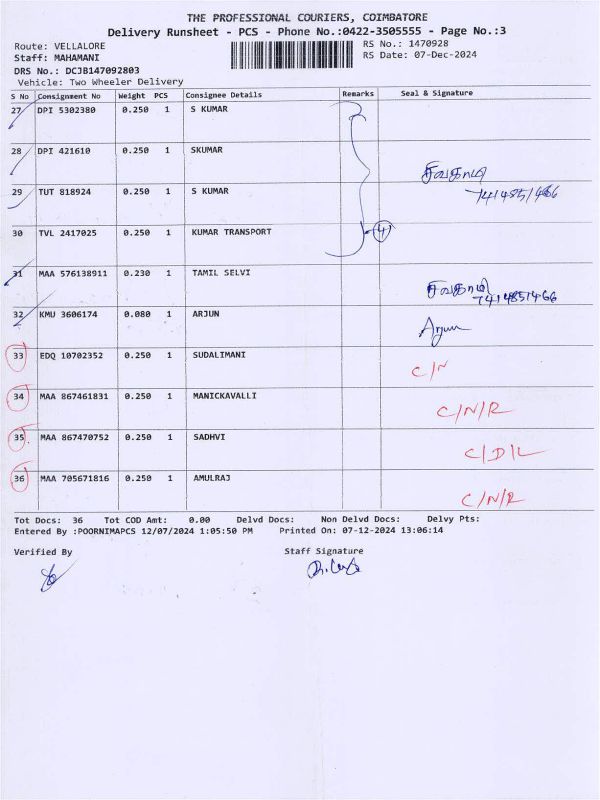 THE PROFESSIONAL COURIERS, COIMBATORE
Delivery Runsheet - PCS - Phone No.:0422-3505555 - Page No.:3
Route: VELLALORE
RS No.: 1470928
Staff: MAHAMANI
RS Date: 07-Dec-2024
DRS No.: DCJB147092803
Vehicle: Two Wheeler Delivery
S No Consignment No Weight PCS Consignee Details Remarks Seal & Signature
27 DPI 5302380 0.250 1 S KUMAR
28 DPI 421610 0.250 1 SKUMAR
29 TUT 818924 0.250 1 S KUMAR
7414851466
30 TVL 2417025 0.250 1 KUMAR TRANSPORT 4
31 MAA 576138911 0.230 1 TAMIL SELVI
7414851466
32 KMU 3606174 0.080 1 ARJUN Arjun
33 EDQ 10702352 0.250 1 SUDALIMANI C/N
34 MAA 867461831 0.250 1 MANICKAVALLI C/N/R
35 MAA 867470752 0.250 1 SADHVI C/D/L
36 MAA 705671816 0.250 1 AMULRAJ C/N/R
Tot Docs: 36 Tot COD Amt: 0.00 Delvd Docs: Non Delvd Docs: Delvy Pts:
Entered By :POORNIMAPCS 12/07/2024 1:05:50 PM Printed On: 07-12-2024 13:06:14
Verified By Staff Signature